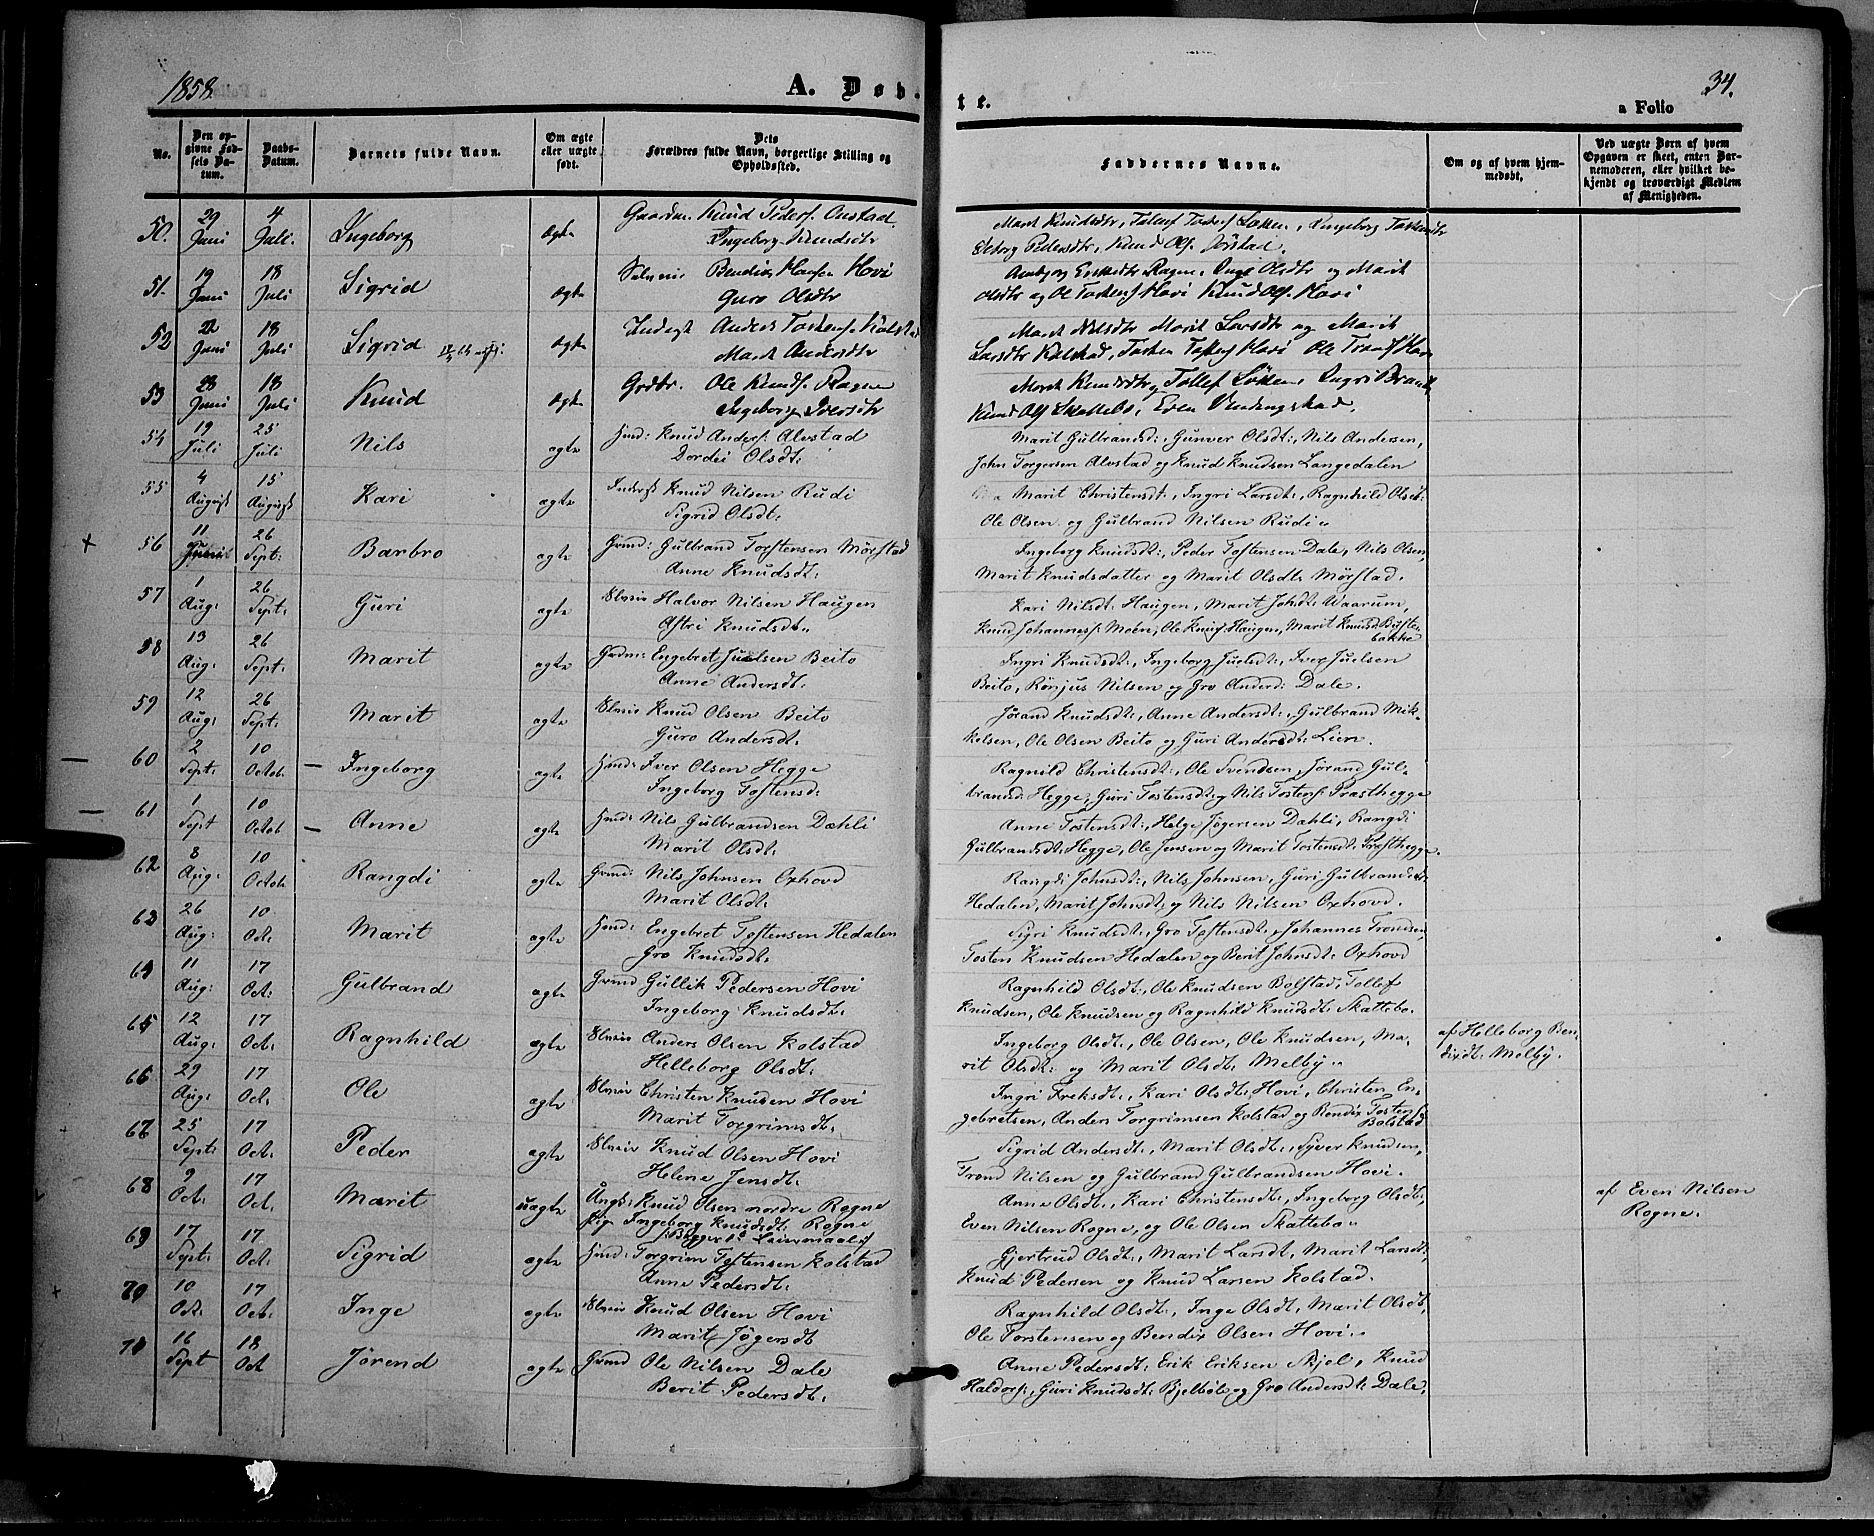 1858.
A. Døb-
te.
34.
a Folio
No.
Den op-
givne Fød-
sels Da-
tum.
Daabs-
Datum.
Barnets fulde Navn.
Om ægte
eller uægte
født.
Dets
Forældres fulde Navn, borgerlige Stilling og
Opholdssted.
Faddernes Navne.
Om og af hvem hjem-
medøbt.
Ved uægte Børn af hvem
Opgaven er skeet, enten Bar-
nemoderen, eller hvilket be-
kjendt og troværdigt Medlem
af Menigheden.
50. 29 Juni 4 Juli. Ingeborg ægte Gaardm. Knud Peders. Onstad
Ingeborg Knudsdtr
Marit Knudsdtr, Tollef Løkken, Ingeborg
Pedersdtr, Knud Ols. Jørstad.
51. 19 Juni 18 Juli Sigrid ægte Selveier Bendix Hansen Hovi
Guro Olsdtr
Ragne, Inge Olsdtr og Marit
Olsdtr og Ole Hovi Knud Ols. Hovi
52 22 Juni 18 Juli Sigrid ægte Inderst Anders Kolstad
Marit Andersdtr
Marit Nilsdtr Marit Larsdtr og Marit
Larsdtr Kolstad, Hovi Ole Hovi
53 28 Juni 18 Juli Knud ægte Grdbr. Ole Knuds. Rogne
Ingeborg Iversdtr
Marit Knudsdtr, Tollef Løkken, Ingri
Knud Ols. Skattebo, Even
54 19 Juli 25 Juli Nils ægte Hmd: Knud Anders: Alvstad
Dordei Olsdt:
Marit Gulbrandsd:, Gunver Olsdt:, Nils Andersen,
John Torgersen Alvstad og Knud Knudsen Langedalen
55 4 August 15 August Kari ægte Inderst Knud Nilsen Rudi
Sigrid Olsdt:
Marit Christensdt:, Ingri Larsdt:, Ragnhild Olsdt:
Ole Olsen og Gulbrand Nilsen Rudi.
56 11 26 Sept: Barbro ægte Grmd: Gulbrand Torstensen Mørstad
Anne Knudsdt:
Ingeborg Knudsdt:, Peder Tostensen Dale, Nils Olsen,
Marit Knudsdatter og Marit Olsdt: Mørstad.
57 1 Aug: 26 Sept: Guri ægte Slveier Halvor Nilsen Haugen
Astri Knudsdt.
Kari Nilsdt: Haugen, Marit Johdt: Waarum,
Knud Johanness: Moen, Ole Knuds Haugen, Marit Knudsd
bakke
58 13 Aug: 26 Sept: Marit ægte Grdm: Engebret Juelsen Beito
Anne Andersdt:
Ingri Knudsdt:, Ingeborg Juelsdt:, Iver Juelsen
Beito, Rønjus Nilsen og Gro Andersd: Dale.
59 12 Aug: 26 Sept: Marit ægte Slveier Knud Olsen Beito
Guro Andersdt:
Jørand Knudsdt:, Anne Andersdt:, Gulbrand Mik-
kelsen, Ole Olsen Beito og Guri Andersdt: Lien.
60 2 Sept: 10 Octob. Ingeborg ægte Hmd: Iver Olsen Hegge
Ingeborg Tostensd:
Ragnild Christensdt:, Ole Svendsen, Jørand Gul-
brandsd: Hegge, Guri Tostensdt: og Nils Tostens: Præsthegge
61 1 Sept 10 Octob Anne ægte Hmd: Nils Gulbrandsen Dæhli
Marit Olsdt:
Anne Tostensdt:, Helge Jøgersen Dæhli, Rangdi
Gulbrandsdt: Hegge, Ole Jensen og Marit Tostensdt: Præsthegge.
62 8 Aug: 10 Octob. Rangdi ægte Grmd: Nils Johnsen Oxhovd
Marit Olsdt:
Rangdi Johnsdt:, Nils Johnsen, Guri Gulbrandsdtr
Hedalen, Marit Johnsdt: og Nils Nilsen Oxhovd.
63 26 Aug: 10 Oct: Marit ægte Hmd: Engebret Tostensen Hedalen
Gro Knudsdt:
Sigri Knudsdt:, Gro Tostensdt:, Johannes Trondsen,
Tosten Knudsen Hedalen og Berit Johnsdt: Oxhovd
64 11 Aug: 17 Oct: Gulbrand ægte Grmd Gullik Pedersen Hovi
Ingeborg Knudsdt:
Ragnhild Olsdt:, Ole Knudsen Bolstad, Tollef
Knudsen, Ole Knudsen og Ragnhild Knudsdt: Skattebo.
65 12 Aug: 17 Oct: Ragnhild ægte Slveier Anders Olsen Kolstad
Helleborg Olsdt:
Ingeborg Olsdt:, Ole Olsen, Ole Knudsen, Ma-
rit Olsdt: og Marit Olsdt: Melby.
af Helleborg Ben-
dixdt: Melby.
66 29 Aug: 17 Oct. Ole ægte Slveier Christen Knudsen Hovi
Marit Torgrimsdt:
Ingri Ereksdt:, Kari Olsdt: Hovi, Christen En-
gebretsen, Anders Torgrimsen Kolstad og Bendix Tostens:
Bolstad
67 25 Sept: 17 Oct. Peder ægte Slveier Knud Olsen Hovi
Helene Jensdt:
Sigrid Andersdt:, Marit Olsdt:, Syver Knudsen,
Trond Nilsen og Gulbrand Gulbrandsen Hovi.
68 9 Oct. 17 Oct. Marit uægte Ungk: Knud Olsen nordre Rogne
Pig. Ingeborg Knudsdt: Rogne
Begges 1ste Leiermaal
Anne Olsdt:, Kari Christensdt:, Ingeborg Olsdt:,
Even Nilsen Rogne, og Ole Olsen Skattebo.
af Even Nilsen
Rogne.
69 17 Sept: 17 Oct. Sigrid ægte Hmd: Torgrim Tostensen Kolstad
Anne Pedersdt:
Gjertrud Olsdt:, Marit Larsdt:, Marit Larsdt:,
Knud Pedersen og Knud Larsen Kolstad.
70 10 Oct. 17 Oct. Inge ægte Slveier Knud Olsen Hovi
Marit Jøgersdt
Ragnhild Olsdt:, Inge Olsdt:, Marit Olsdt,
Ole Torstensen og Bendix Olsen Hovi.
71 16 Sept 18 Oct Jørend ægte Grmd Ole Nilsen Dale
Berit Pedersdt:
Anne Pedersdt: Erik Eriksen Skjel, Knud
Haldors:, Guri Knudsdt: Bjelbøle og Gro Andersdt: Dale.